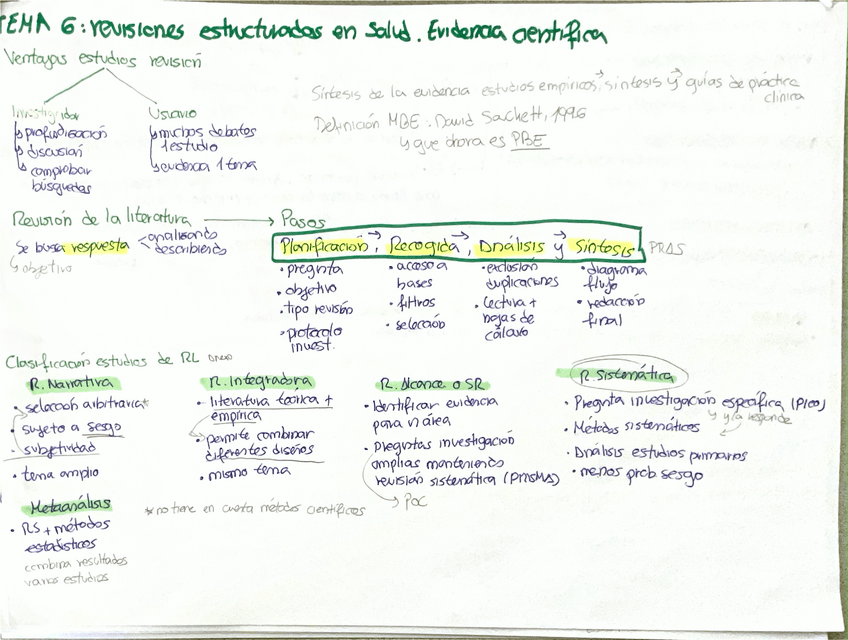 TEMA 6: revisiones estructuradas en Salud. Evidencia científica
Ventajas estudios revisión
Investigador
profundización
discusión
comprobar
búsquedas
Usuario
muchos debates
1 estudio
evidencia 1 tema
Síntesis de la evidencia estudios empíricos, síntesis y guías de práctica
clínica
Definición MBE: David Sachett, 1996
y que ahora es PBE
Revisión de la literatura
Se busca respuesta
analizando
describiendo
objetivo
Pasos
Planificación, Recogida, Análisis y Síntesis
PRAS
• pregunta
• objetivo
• tipo revisión
• protocolo
invest.
• acceso a
bases
• filtros
• selección
• exclusión
duplicaciones
• Lectura +
hojas de
cálculo
• diagrama
flujo
• redacción
final
Clasificación estudios de RL
R. Narrativa
• selección arbitraria*
• sujeto a sesgo
subjetividad
• tema amplio
R. Integradora
• literatura teórica +
empírica
• permite combinar
diferentes diseños
• mismo tema
R. Alcance o SR
• Identificar evidencia
para 1 área
• Preguntas investigación
amplias manteniendo
revisión sistemática (PRISMA)
PCC
R. Sistemática
• Pregunta investigación específica (PICO)
y la responde
• Métodos sistemáticos
• Análisis estudios primarios
• menos prob. sesgo
Metaanálisis
• RS + métodos
estadísticos
combina resultados
varios estudios
*no tiene en cuenta métodos científicos